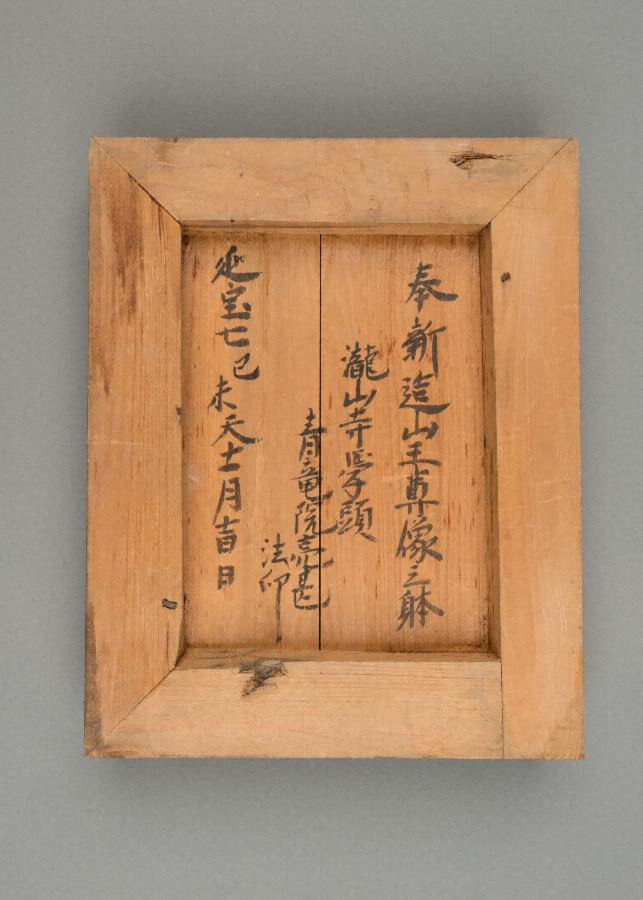 奉新造山王尊像之躰
瀧山寺学頭
青竜院亮甚
法印
延宝七己未天十一月吉日